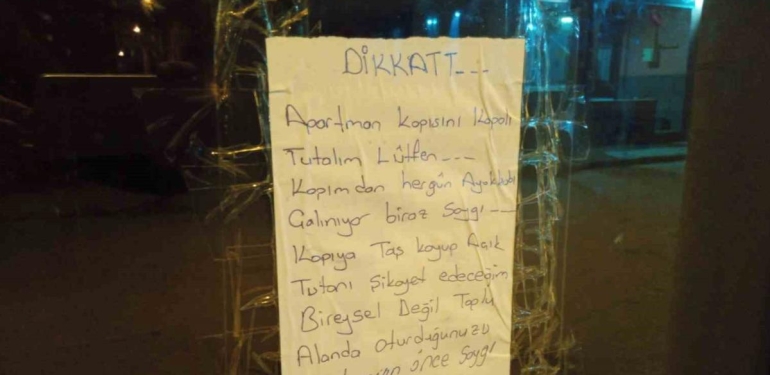 DİKKATT---
Apartman Kapısını Kapalı
Tutalım Lütfen---
Kapımdan hergün Ayakkabı
Galınıyor biraz Saygı---
Kapıya Taş koyup Açık
Tutanı Şikayet edeceğim
Bireysel Değil Toplu
Alanda oturduğunuzu
önce Saygı